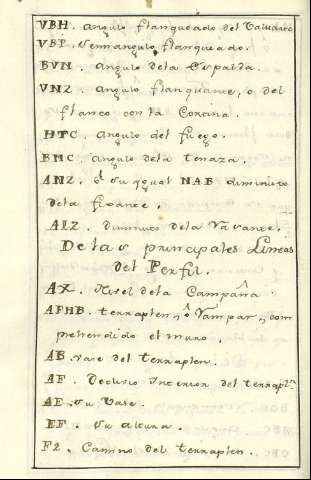 VBH. angulo flanqueado del Valuarte
VBP. Semiangulo flanqueado.
BVN. Angulo dela Espalda.
VNZ. angulo flanqueante, o del
flanco con la Cortina.
HTC. angulo del fuego.
BMC. angulo dela tenaza.
ANZ. ô su ygual NAB diminuto
dela fixante.
ALZ. diminuto dela Rasante.
Delas principales Lineas
del Perfil.
AX. Nivel dela Campaña.
AFHB. terraplen, ô Rampar, com
prehendido el muro.
AB. vase del terraplen.
AF. Declivio Interior del terrapln.
AE. su Vase.
EF. su altura.
FZ. Camino del terraplen.